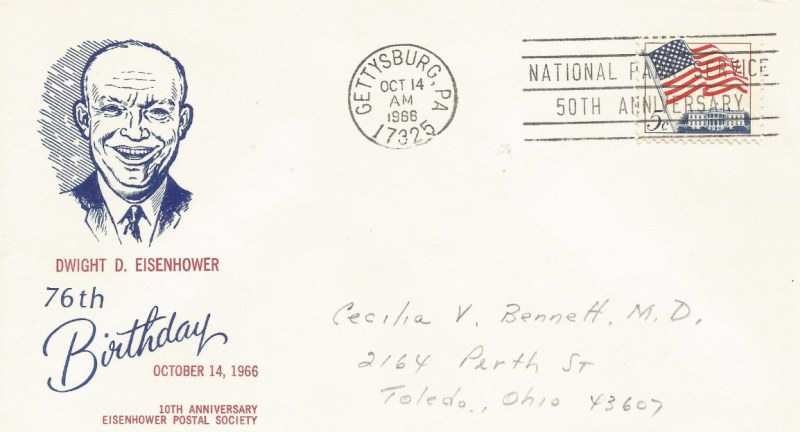 GETTYSBURG, PA
OCT 14
AM
1966
17325
NATIONAL PARK SERVICE
50TH ANNIVERSARY
5c
DWIGHT D. EISENHOWER
76th
Birthday
OCTOBER 14, 1966
10TH ANNIVERSARY
EISENHOWER POSTAL SOCIETY
Cecilia V. Bennett, M.D.
2164 Perth St
Toledo, Ohio 43607